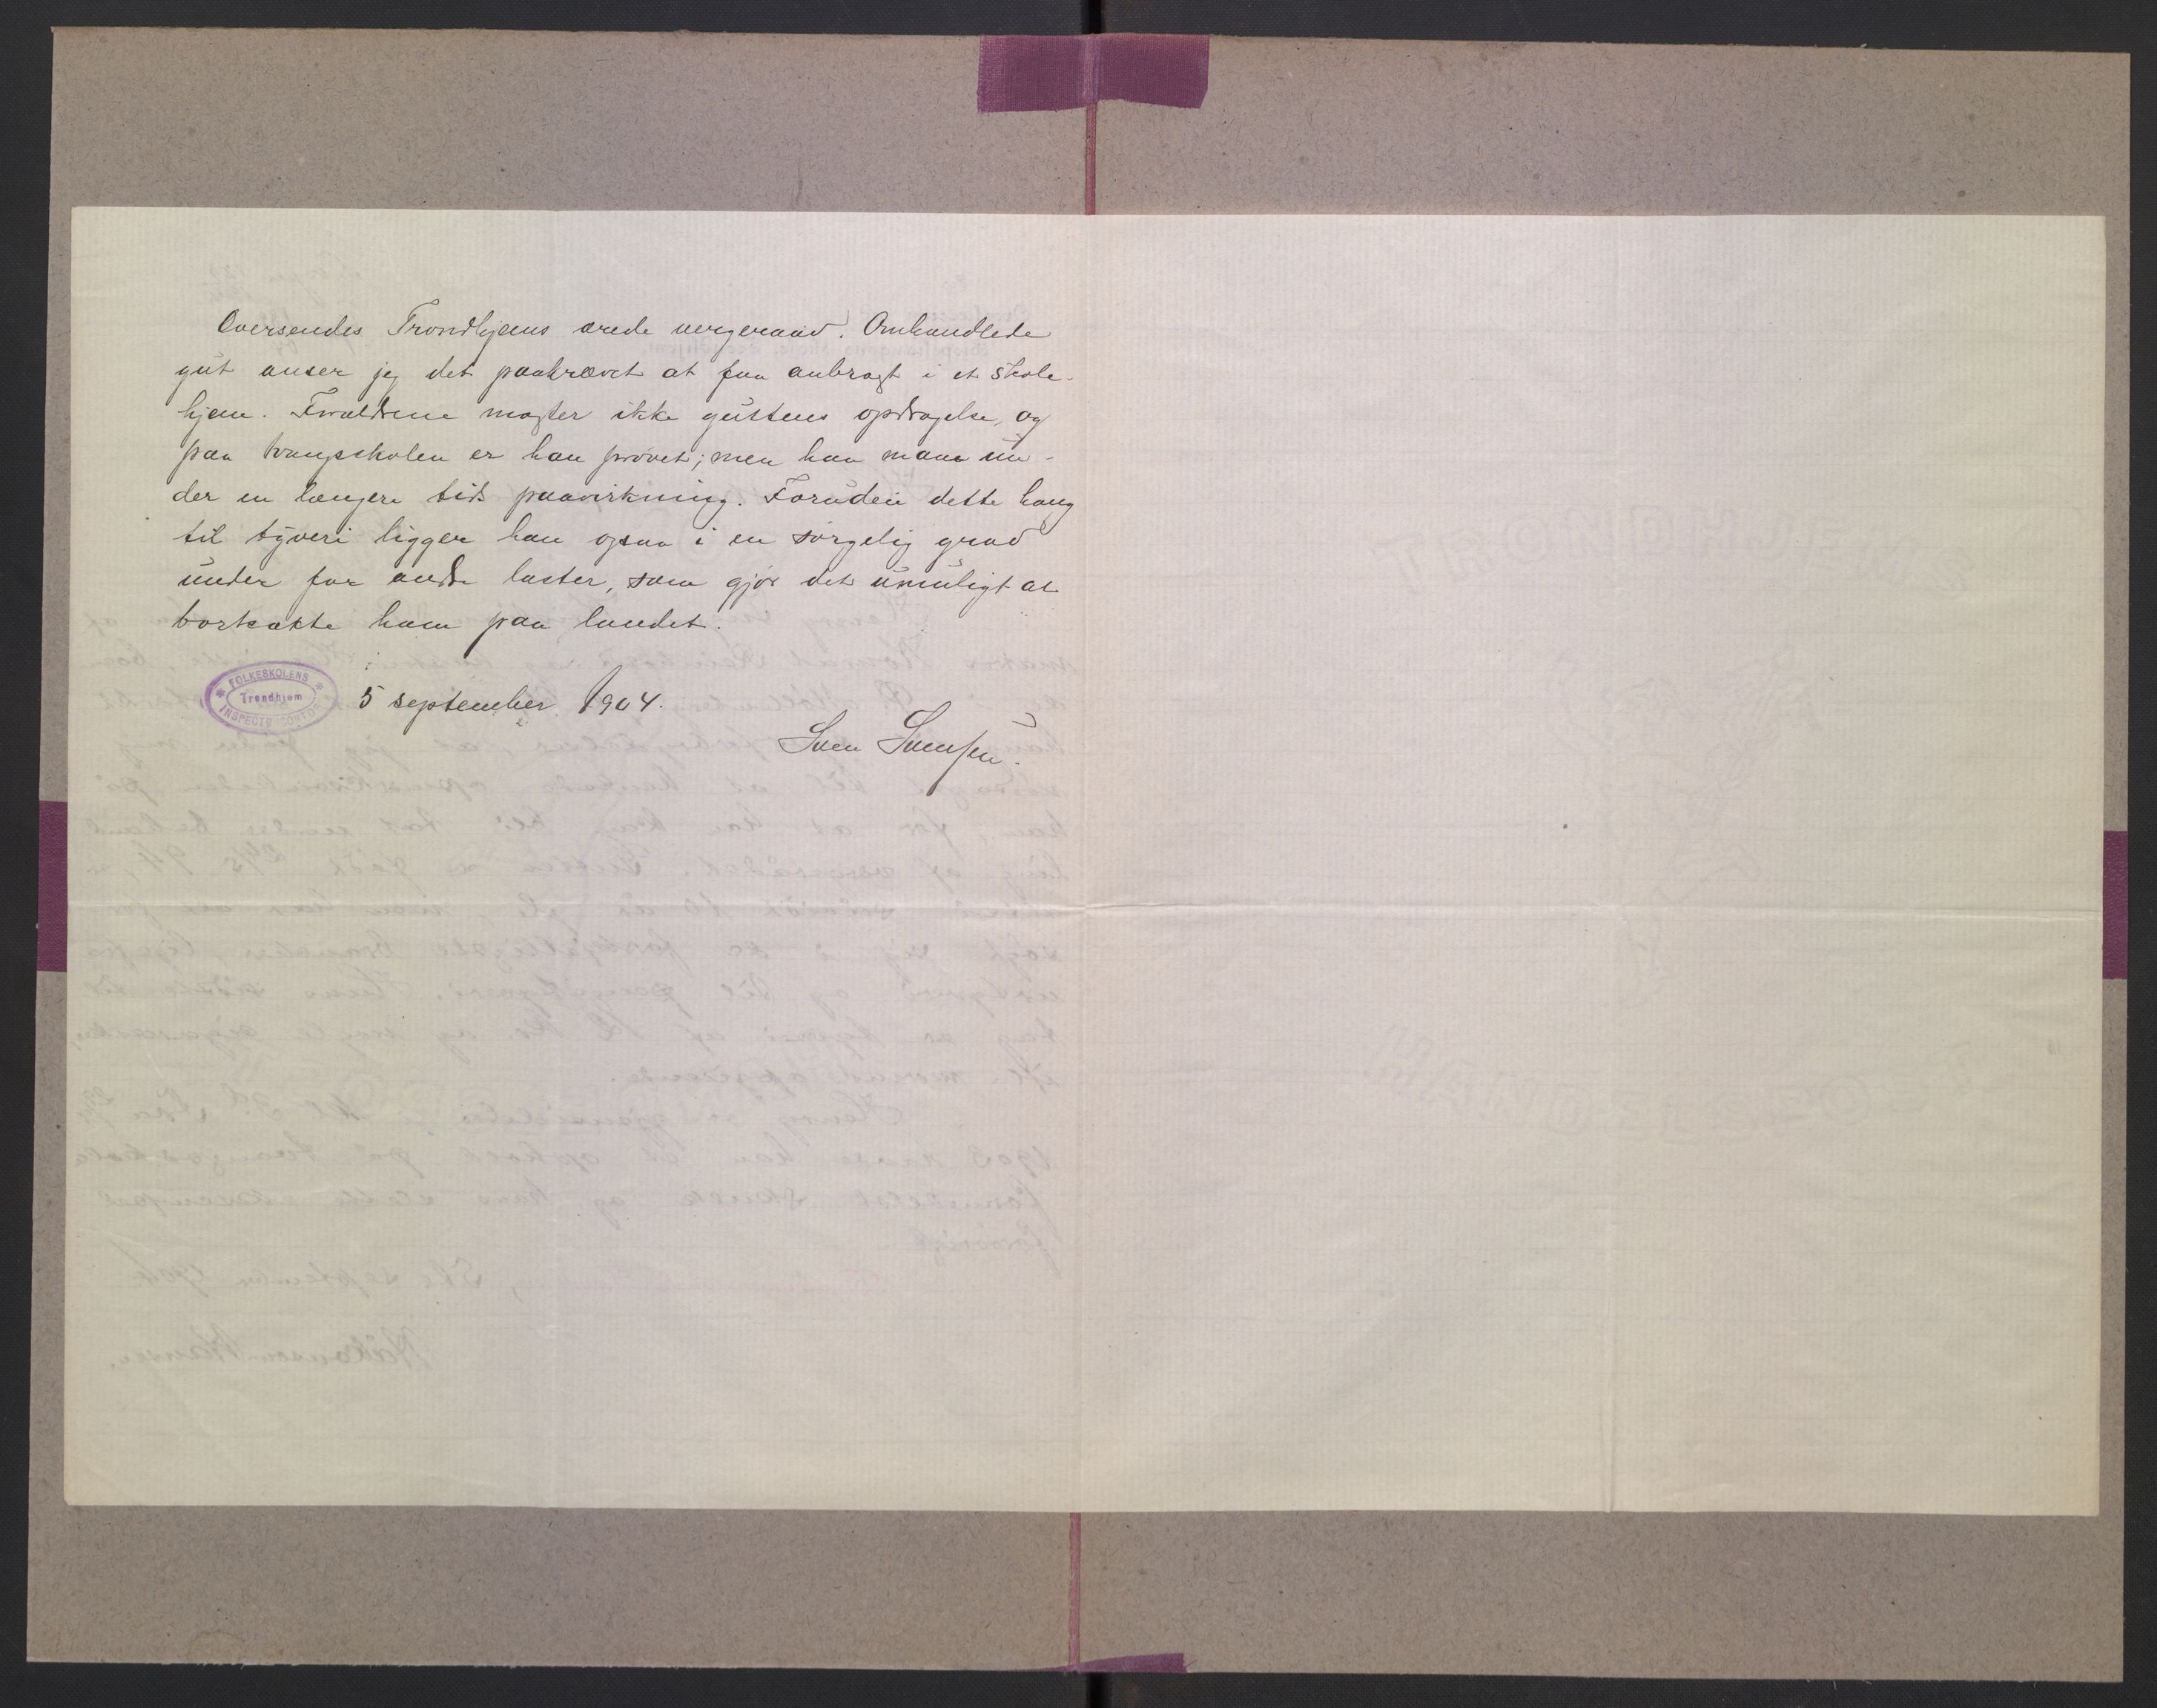 Oversendes Trondhjems ærede vergeraad. Omhandlede
gut anser jeg det paakrævet at faa anbragt i et skole-
hjem. Forældrene magter ikke guttens opdragelse, og
paa tvangsskolen er han prøvet; men han maa un-
der en længere tids paavirkning. Foruden dette hang
til tyveri ligger han ogsaa i en sørgelig grad
under for andre laster, som gjør det umuligt at
bortsætte ham paa landet.
FOLKESKOLENS
Trondhjem
5 september 1904.